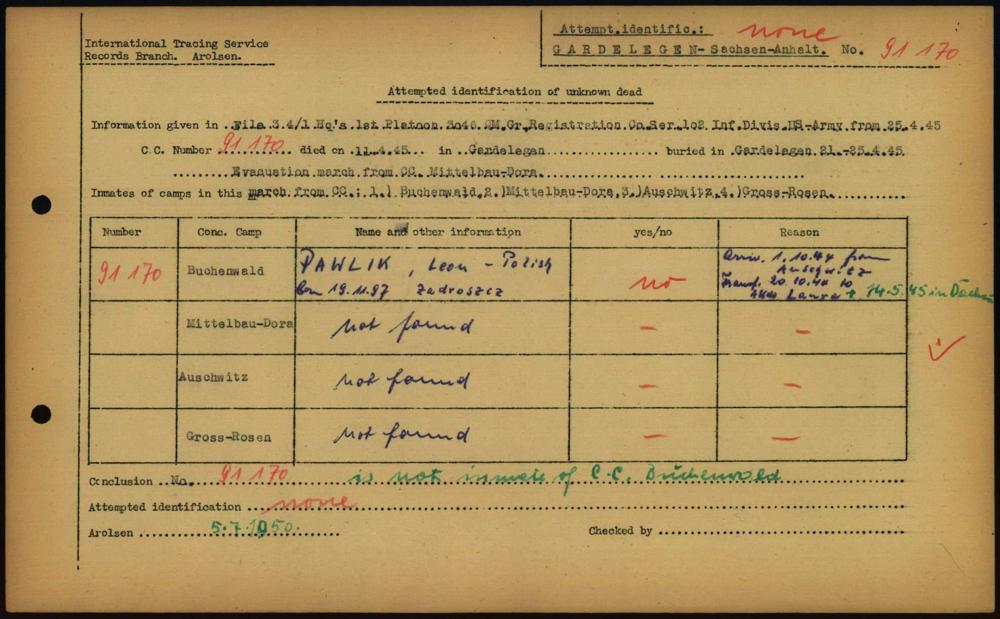 International Tracing Service
Records Branch. Arolsen.
Attempt.identific.: none
GARDELEGEN-Sachsen-Anhalt. No. 91 170
Attempted identification of unknown dead
Information given in File 3.4/1 Hq's 1st Platoon 3046 QM.Gr.Registration Co.Ser.102 Inf.Divis.US-Army from 25.4.45
C.C. Number 91 170 died on 11.4.45 in Gardelegen buried in Gardelegen 21.-25.4.45.
Evacuation march from CC. Mittelbau-Dora.
Inmates of camps in this march from CC.: 1.) Buchenwald 2.)Mittelbau-Dora 3.)Auschwitz 4.)Gross-Rosen.
Number Conc. Camp Name and other information yes/no Reason
91 170 Buchenwald PAWLIK, Leon - Polish no Arriv. 1.10.44 from Auschwitz
born 19.11.97 Zadroszcz Transf. 20.10.44 to
Kdo Laura + 14.5.45 in Dachau
Mittelbau-Dora not found — —
Auschwitz not found — —
Gross-Rosen not found — —
Conclusion No. 91 170 is not inmate of C.C. Buchenwald
Attempted identification none
Arolsen 5.7.1950. Checked by